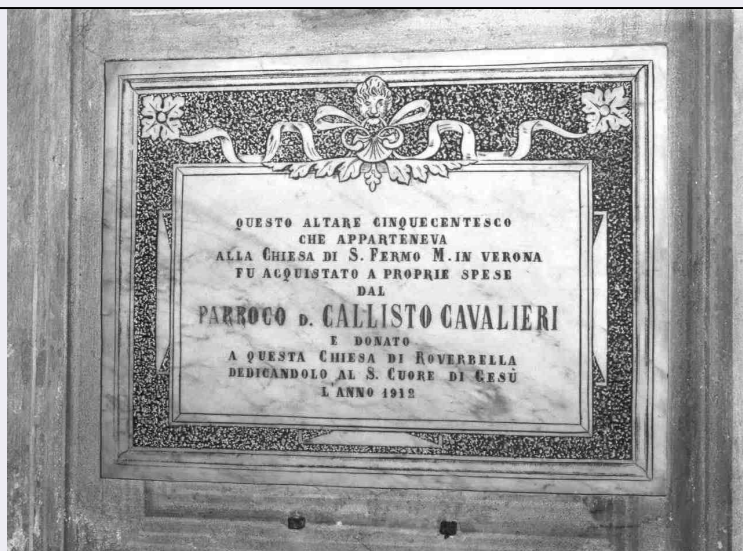 QUESTO ALTARE CINQUECENTESCO
CHE APPARTENEVA
ALLA CHIESA DI S. FERMO M. IN VERONA
FU ACQUISTATO A PROPRIE SPESE
DAL
PARROCO D. CALLISTO CAVALIERI
E DONATO
A QUESTA CHIESA DI ROVERBELLA
DEDICANDOLO AL S. CUORE DI GESÙ
L'ANNO 1912